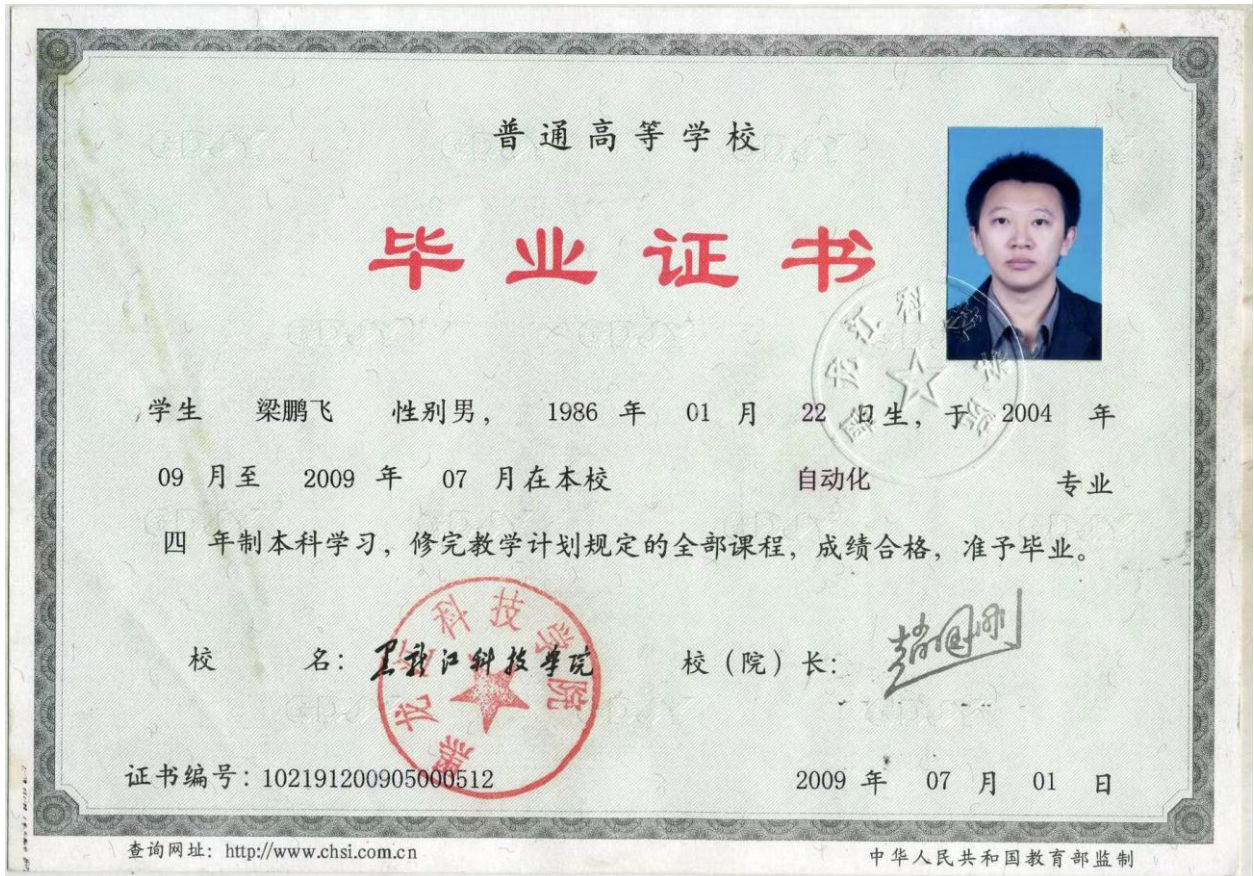 普通高等学校
毕业证书
学生 梁鹏飞 性别男, 1986 年 01 月 22 日生, 于 2004 年
09 月至 2009 年 07 月在本校 自动化 专业
四 年制本科学习, 修完教学计划规定的全部课程, 成绩合格, 准予毕业。
校 名: 黑龙江科技学院 校 (院) 长: 赵国刚
黑龙江科技学院
黑龙江科技学院
证书编号: 102191200905000512 2009 年 07 月 01 日
查询网址: http://www.chsi.com.cn 中华人民共和国教育部监制